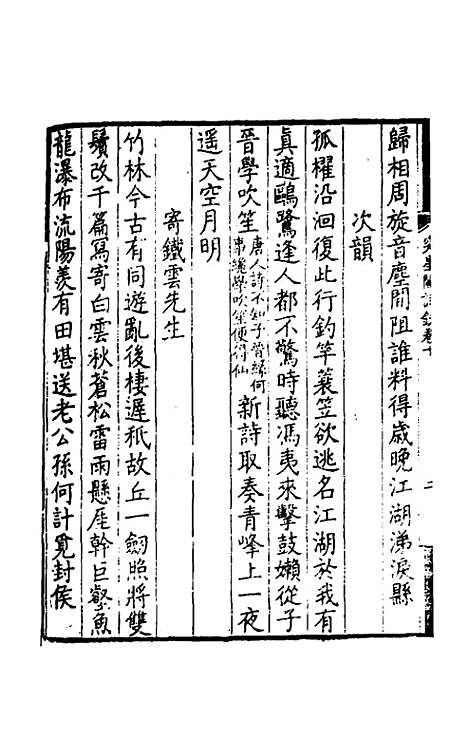 歸相周旋音塵間阻誰料得歲晚江湖涕淚縣
次韻
孤櫂沿洄復此行釣竿蓑笠欲逃名江湖於我有
眞適鷗鷺逢人都不驚時聽馮夷來擊鼓嬾從子
晉學吹笙唐人詩不知子晉緣何事纔學吹笙便得仙新詩取奏青峰上一夜
遥天空月明
寄鐵雲先生
竹林今古有同遊亂後棲遲秖故丘一劒照將雙
鬢改千篇寫寄白雲秋蒼松雷雨懸厓幹巨壑魚
龍瀑布流陽羨有田堪送老公孫何計覓封侯